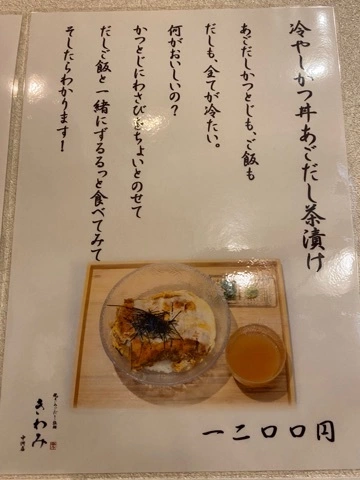 冷やしかつ丼あごだし茶漬け
あごだしかつとじも、ご飯も
だしも、全てが冷たい。
何がおいしいの？
かつとじにわさびをちょいとのせて
だしご飯と一緒にずるるっと食べてみて
そしたらわかります！
一二〇〇円
きわみ